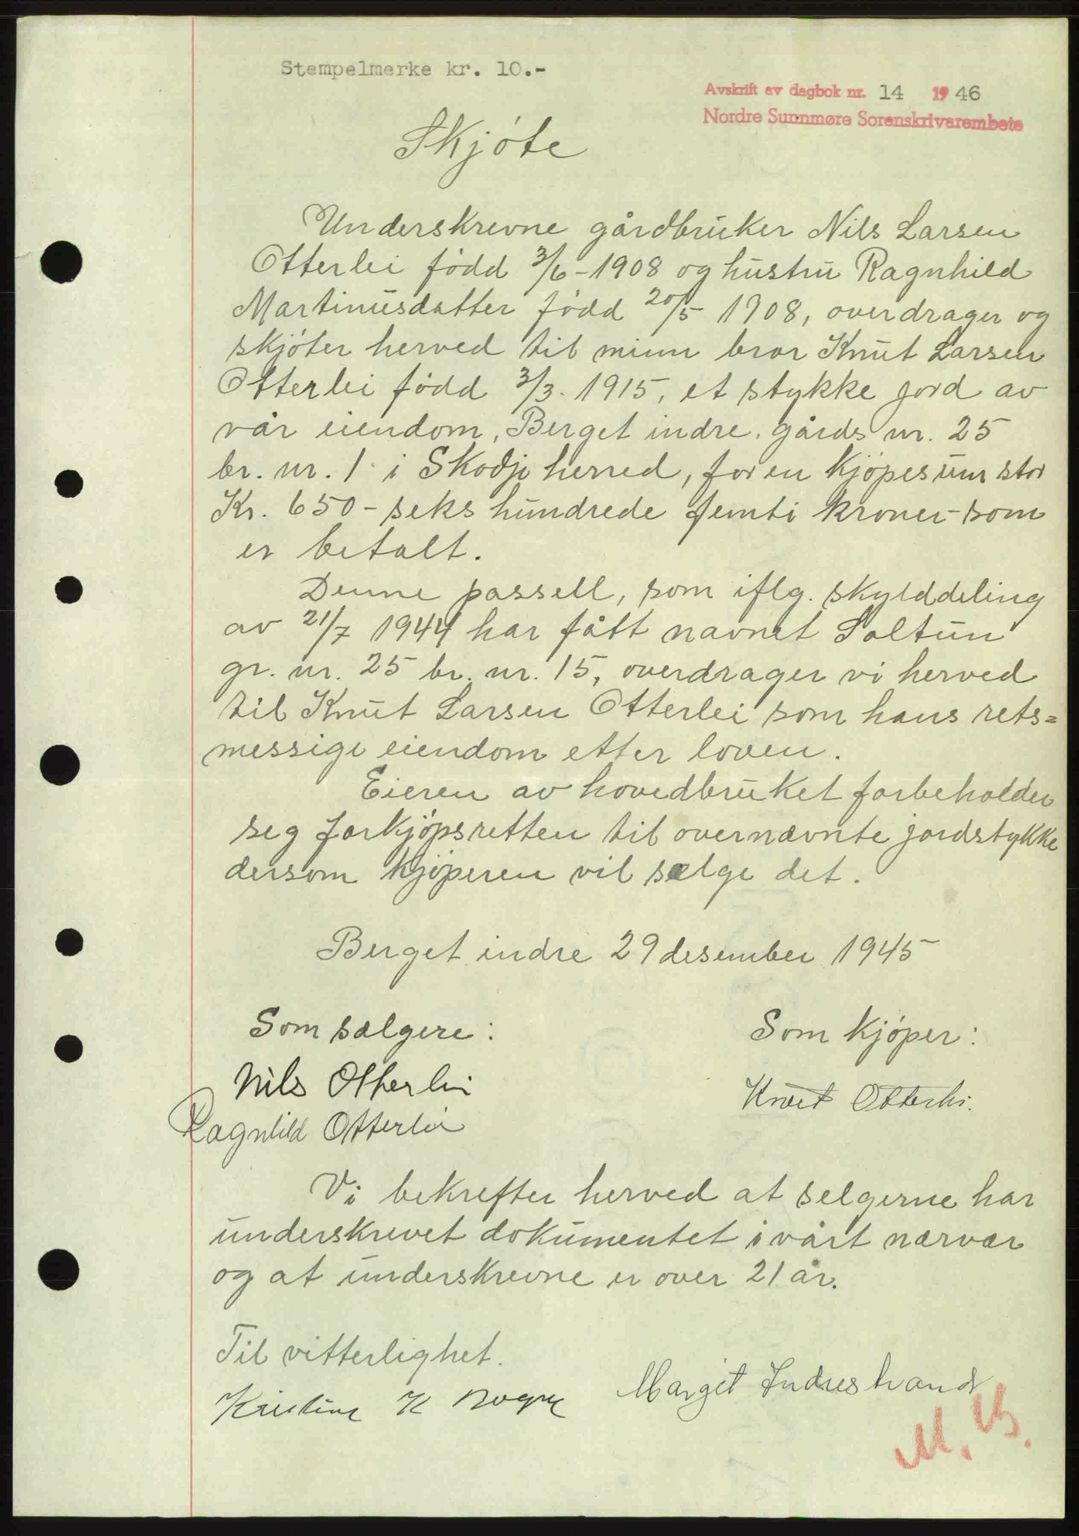 Stempelmerke kr. 10.-
Avskrift av dagbok nr. 14 1946
Nordre Sunnmøre Sorenskrivarembete
Skjøte
Underskrevne gårdbruker Nils Larsen
Otterlei født 3/6-1908 og hustru Ragnhild
Martinusdatter født 20/5 1908, overdrager og
skjøter herved til minn bror Knut Larsen
Otterlei født 3/3. 1915, et stykke jord av
vår eiendom, Berget indre, gårds nr. 25
br. nr. 1 i Skodje herred, for en kjøpesum stor
Kr. 650 - seks hundrede femti kroner - som
er betalt.
Denne passell, som iflg. skylddeling
av 21/7 1944 har fått navnet Soltun
gr. nr. 25 br. nr. 15, overdrager vi herved
til Knut Larsen Otterlei som hans rets=
messige eiendom etter loven.
Eieren av hovedbruket forbeholder
seg forkjøpsretten til overnævnte jordstykke
dersom kjøperen vil sælge det.
Berget indre 29 desember 1945
Som sælgere:
Som kjøper:
Nils Otterlei
Knut Otterlei.
Ragnhild Otterlei
Vi bekrefter herved at selgerne har
underskrevet dokumentet i vårt nærvær
og at underskrevne er over 21 år.
Til vitterlighet.
Margit Indrestrand
Kristine K
M. B.